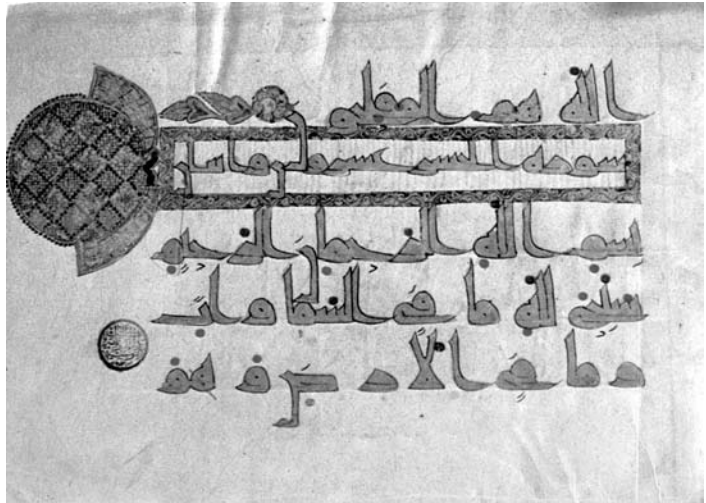 الله هم المفلحون
سورة الحشر عشرون
بسم الله الرحمن الرحيم
سبح لله ما في السموات
وما في الارض وهو